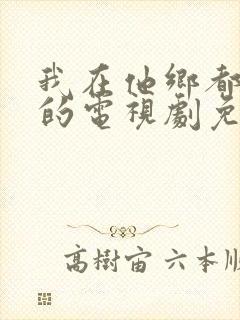 我在他鄉都
的電視劇免
高樹宙 六本順